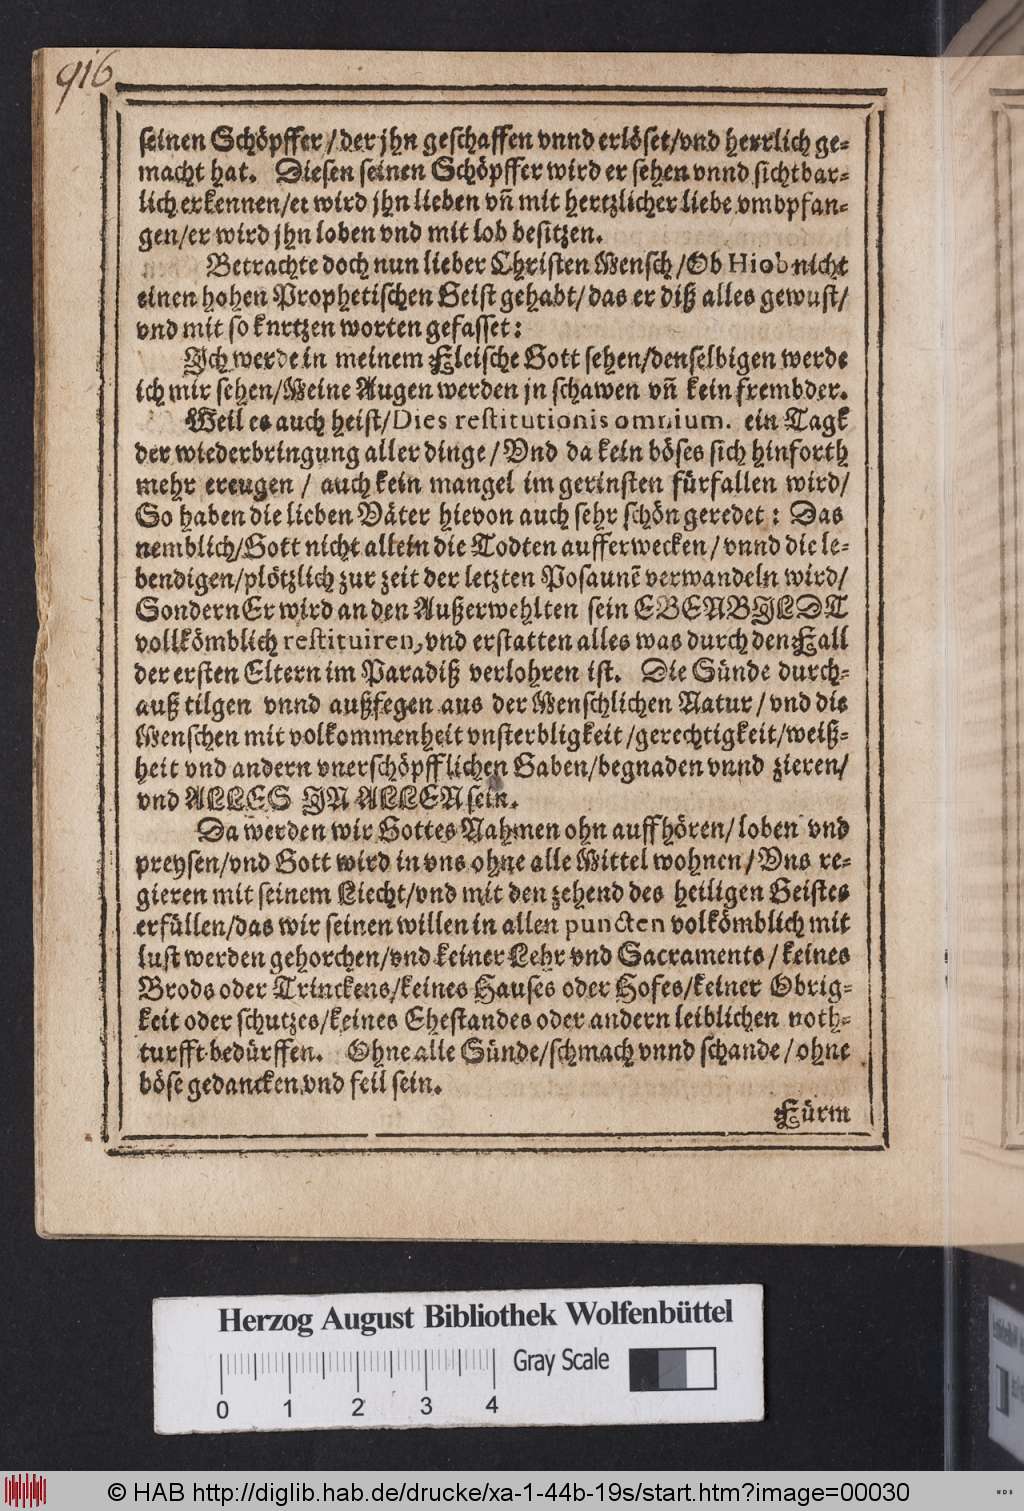 916
seinen Schöpffer / der jhn geschaffen vnnd erlöset/vnd herrlich ge-
macht hat. Diesen seinen Schöpffer wird er sehen vnnd sichtbar-
lich erkennen/er wird jhn lieben vñ mit hertzlicher liebe vmbpfan-
gen/er wird jhn loben vnd mit lob besitzen.
Betrachte doch nun lieber Christen Mensch /Ob Hiob nicht
einen hohen Prophetischen Geist gehabt/ das er diß alles gewust/
vnd mit so knrtzen worten gefasset:
Ich werde in meinem Fleische Gott sehen/denselbigen werde
ich mir sehen/Meine Augen werden jn schawen vñ kein frembder.
Weil es auch heist/Dies restitutionis omnium. ein Tagk
der wiederbringung aller dinge / Vnd da kein böses sich hinforth
mehr ereugen / auch kein mangel im gerinsten fürfallen wird/
So haben die lieben Väter hievon auch sehr schön geredet : Das
nemblich/Gott nicht allein die Todten aufferwecken/ vnnd die le-
bendigen/plötzlich zur zeit der letzten Posaunē verwandeln wird/
Sondern Er wird an den Außerwehlten sein EBENBILDT
vollkömblich restituiren, vnd erstatten alles was durch den Fall
der ersten Eltern im Paradiß verlohren ist. Die Sünde durch-
auß tilgen vnnd außfegen aus der Menschlichen Natur / vnd die
Menschen mit volkommenheit vnsterbligkeit /gerechtigkeit/weiß-
heit vnd andern vnerschöpfflichen Gaben/begnaden vnnd zieren/
vnd ALLES IN ALLEN sein.
Da werden wir Gottes Nahmen ohn auffhören/ loben vnd
preysen/vnd Gott wird in vns ohne alle Mittel wohnen/ Vns re-
gieren mit seinem Liecht/vnd mit den zehend des heiligen Geistes
erfüllen/das wir seinen willen in allen puncten volkömblich mit
lust werden gehorchen/vnd keiner Lehr vnd Sacraments / keines
Brods oder Trinckens/keines Hauses oder Hofes/keiner Obrig-
keit oder schutzes/keines Ehestandes oder andern leiblichen noth-
turfft bedürffen. Ohne alle Sünde/schmach vnnd schande / ohne
böse gedancken vnd feil sein.
Fürm
Herzog August Bibliothek Wolfenbüttel
Gray Scale
0 1 2 3 4
© HAB http://diglib.hab.de/drucke/xa-1-44b-19s/start.htm?image=00030